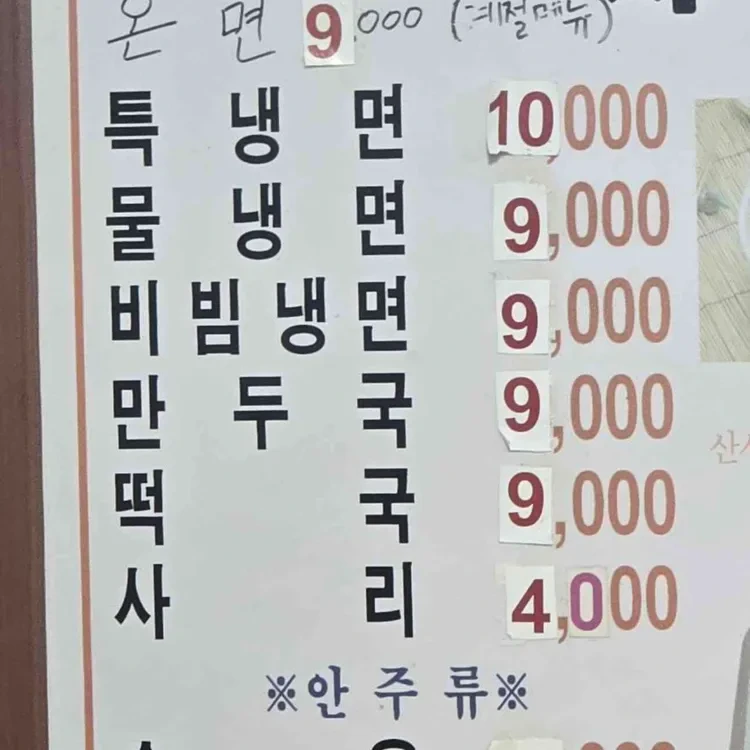 온 면 9.000 (계절메뉴)
특 냉 면 10,000
물 냉 면 9,000
비 빔 냉 면 9,000
만 두 국 9,000
떡 국 9,000
사 리 4,000
※안 주 류※